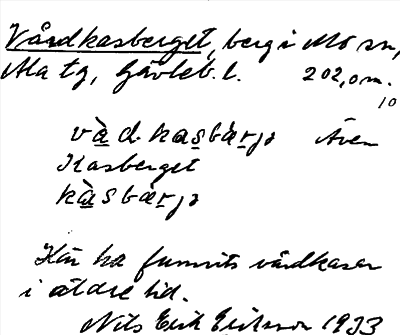 Vårdkasberget, berg i Mo sn,
Ala tg, Gävleb. l. 202,0 m.
10
vàd kasbàrjə Även
Kasberget
kàsbærjə
Här ha funnits vårdkasar
i äldre tid.
Nils Erik Eriksson 1933